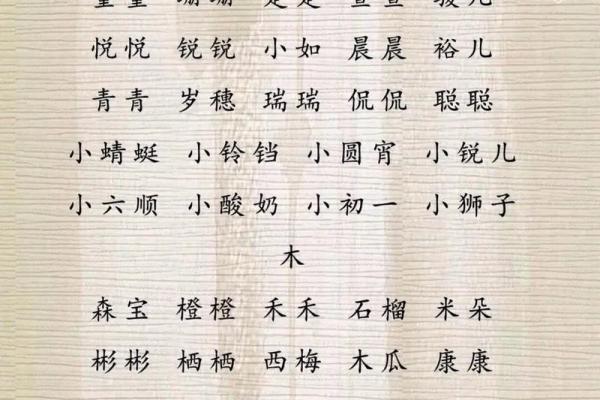 悦悦 锐锐 小如 晨晨 裕儿
青青 岁穗 瑞瑞 侃侃 聪聪
小蜻蜓 小铃铛 小圆宵 小锐儿
小六顺 小酸奶 小初一 小狮子
木
森宝 橙橙 禾禾 石榴 米朵
彬彬 栖栖 西梅 木瓜 康康